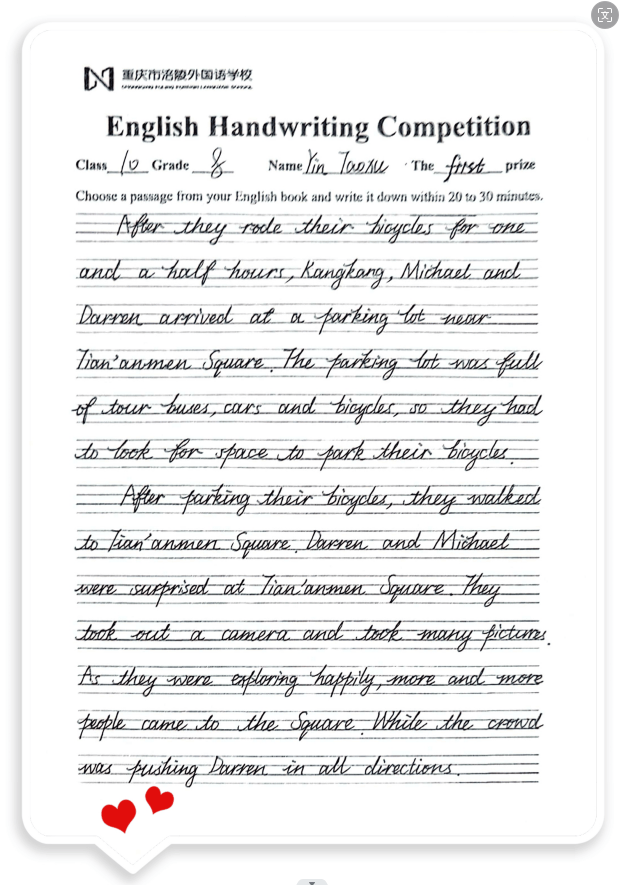 重庆市涪陵外国语学校
English Handwriting Competition
Class 10 Grade 8 Name Yin Taoxu · The first prize
Choose a passage from your English book and write it down within 20 to 30 minutes.
After they rode their bicycles for one
and a half hours, Kangkang, Michael and
Darren arrived at a parking lot near
Tian'anmen Square. The parking lot was full
of tour buses, cars and bicycles, so they had
to look for space to park their bicycles.
After parking their bicycles, they walked
to Tian'anmen Square. Darren and Michael
were surprised at Tian'anmen Square. They
took out a camera and took many pictures.
As they were exploring happily, more and more
people came to the Square. While the crowd
was pushing Darren in all directions.